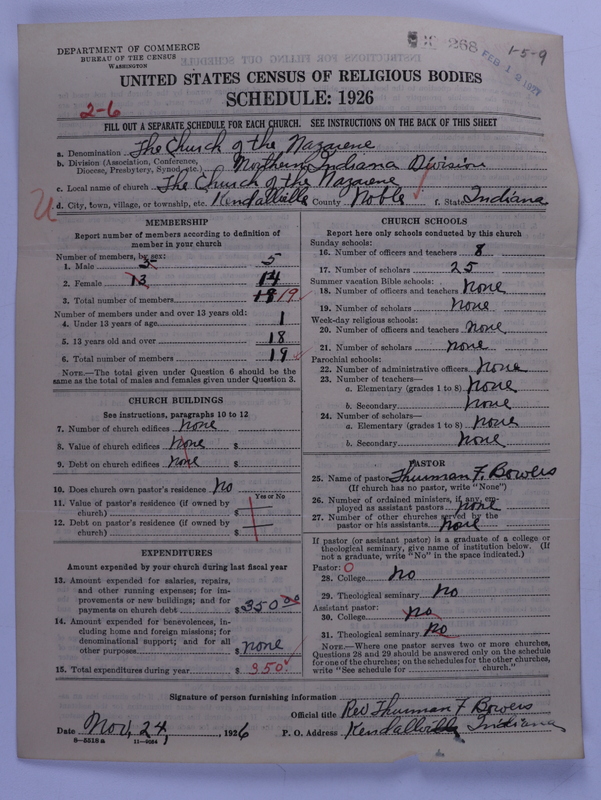 DEPARTMENT OF COMMERCE
BUREAU OF THE CENSUS
WASHINGTON
268
FEB 1 2 1927
1-5-9
UNITED STATES CENSUS OF RELIGIOUS BODIES
SCHEDULE: 1926
2-6
FILL OUT A SEPARATE SCHEDULE FOR EACH CHURCH. SEE INSTRUCTIONS ON THE BACK OF THIS SHEET
a. Denomination The Church of the Nazarene
b. Division (Association, Conference, Diocese, Presbytery, Synod, etc.) Northern Indiana Division
c. Local name of church The Church of the Nazarene
d. City, town, village, or township, etc. Kendallville County Noble f. State Indiana
MEMBERSHIP
Report number of members according to definition of
member in your church
Number of members, by sex:
1. Male 5 5
2. Female 13 14
3. Total number of members 19 19
Number of members under and over 13 years old:
4. Under 13 years of age 1
5. 13 years old and over 18
6. Total number of members 19
NOTE.—The total given under Question 6 should be the
same as the total of males and females given under Question 3.
CHURCH BUILDINGS
See instructions, paragraphs 10 to 12
7. Number of church edifices None
8. Value of church edifices None $
9. Debt on church edifices None $
10. Does church own pastor's residence No
Yes or No
11. Value of pastor's residence (if owned by
church) $
12. Debt on pastor's residence (if owned by
church) $
EXPENDITURES
Amount expended by your church during last fiscal year
13. Amount expended for salaries, repairs,
and other running expenses; for im-
provements or new buildings; and for
payments on church debt $350.00
14. Amount expended for benevolences, in-
cluding home and foreign missions; for
denominational support; and for all
other purposes $none
15. Total expenditures during year $350
CHURCH SCHOOLS
Report here only schools conducted by this church
Sunday schools:
16. Number of officers and teachers 8
17. Number of scholars 25
Summer vacation Bible schools:
18. Number of officers and teachers None
19. Number of scholars None
Week-day religious schools:
20. Number of officers and teachers None
21. Number of scholars None
Parochial schools:
22. Number of administrative officers None
23. Number of teachers—
a. Elementary (grades 1 to 8) None
b. Secondary None
24. Number of scholars—
a. Elementary (grades 1 to 8) None
b. Secondary None
PASTOR
25. Name of pastor Thurman F. Bowers
(If church has no pastor, write "None")
26. Number of ordained ministers, if any, em-
ployed as assistant pastors None
27. Number of other churches served by the
pastor or his assistants None
If pastor (or assistant pastor) is a graduate of a college or
theological seminary, give name of institution below. (If
not a graduate, write "No" in the space indicated.)
Pastor: O
28. College No
29. Theological seminary No
Assistant pastor:
30. College No
31. Theological seminary No
NOTE.—Where one pastor serves two or more churches,
Questions 28 and 29 should be answered only on the schedule
for one of the churches; on the schedules for the other churches,
write "See schedule for church."
Signature of person furnishing information
Official title Rev Thurman F Bowers
Date Nov, 24, 1926 P. O. Address Kendallville Indiana
8—5518a 11—9084